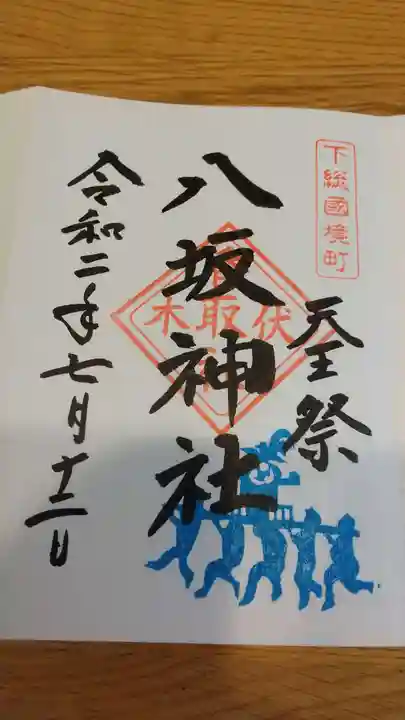 下総國境町
天王祭
八坂神社
伏
取
木
令和二年七月十二日